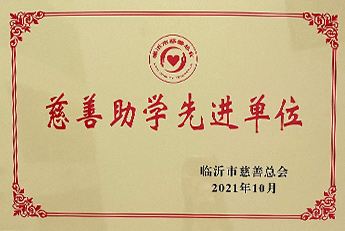 临沂市慈善总会
慈善助学先进单位
临沂市慈善总会
2021年10月